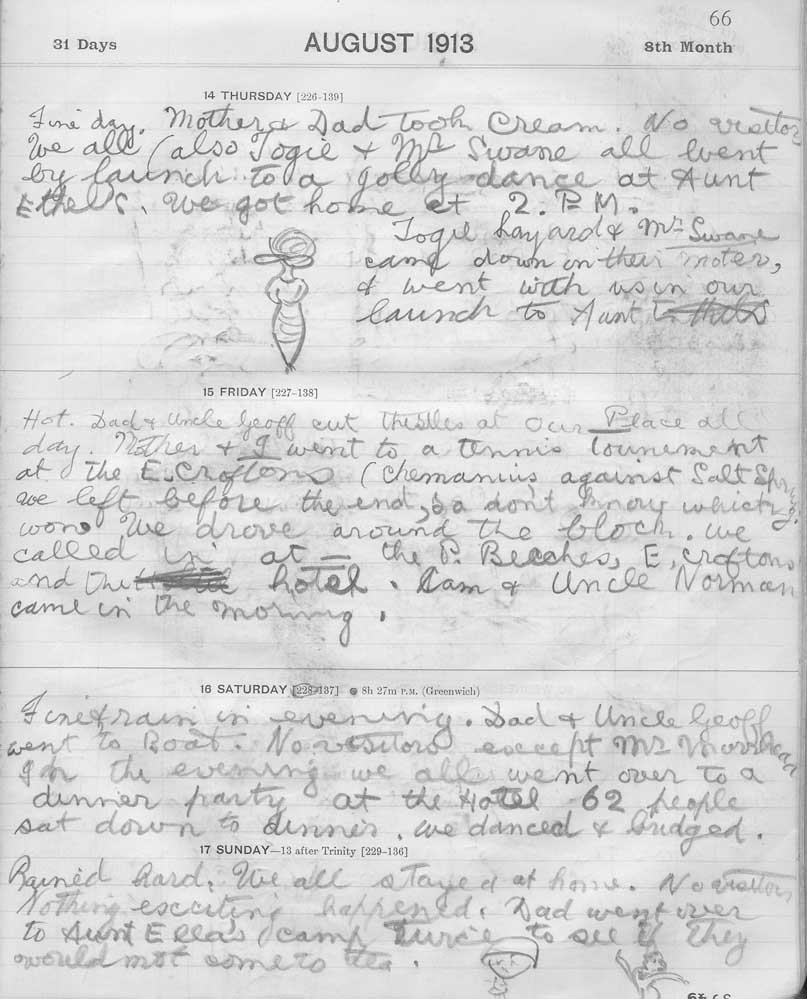 66
31 Days AUGUST 1913 8th Month
14 THURSDAY [226-139]
Fine day. Mother & Dad took Cream. No visitors
We all (also Togie & Mr Swane all went
by launch to a jolly dance at Aunt
Ethels. We got home at 2. P M.
Togie Layard & Mr Swane
came down in their moter,
& went with us in our
launch to Aunt
15 FRIDAY [227-138]
Hot. Dad & Uncle Geoff cut thistles at Our Place all
day. Mother & I went to a tennis tournement
at the E. Croftons (Chemanius against Salt Spring.
we left before the end, so a dont know which
won. We drove around the block. we
called in at — the P. Beeches, E, croftons
and the hotel. Cam & Uncle Norman
came in the morning.
16 SATURDAY [228-137] ● 8h 27m P.M. (Greenwich)
Fine & rain in evening. Dad & Uncle Geoff
went to Boat. No visitors except Mr
In the evening we all went over to a
dinner party at the Hotel 62 people
sat down to dinner. we danced & bridged.
17 SUNDAY—13 after Trinity [229-136]
Rained hard. We all stayed at home. No visitors
Nothing exciting happened. Dad went over
to Aunt Ella's camp twice to see if they
would not come to tea.